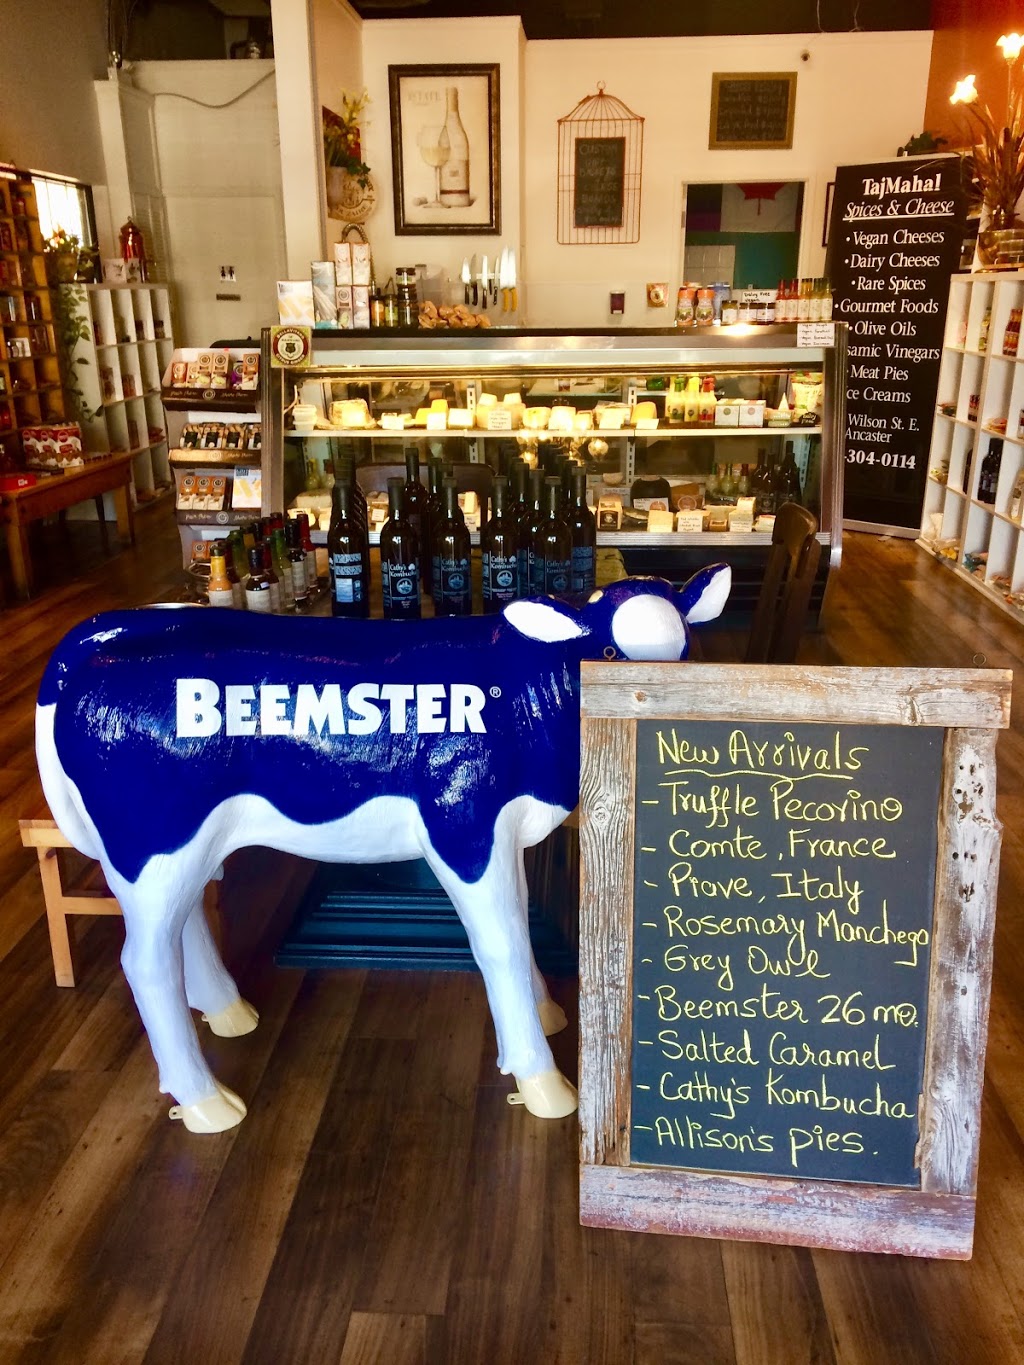 TajMahal
Spices & Cheese
• Vegan Cheeses
• Dairy Cheeses
• Rare Spices
• Gourmet Foods
• Olive Oils
samic Vinegars
Meat Pies
ce Creams
Wilson St. E.
Ancaster
-304-0114
Cathy's
Kombucha
BEEMSTER®
New Arrivals
- Truffle Pecorino
- Comte, France
- Piave, Italy
- Rosemary Manchego
- Grey Owl
- Beemster 26 mo.
- Salted Caramel
- Cathy's Kombucha
- Allison's pies.